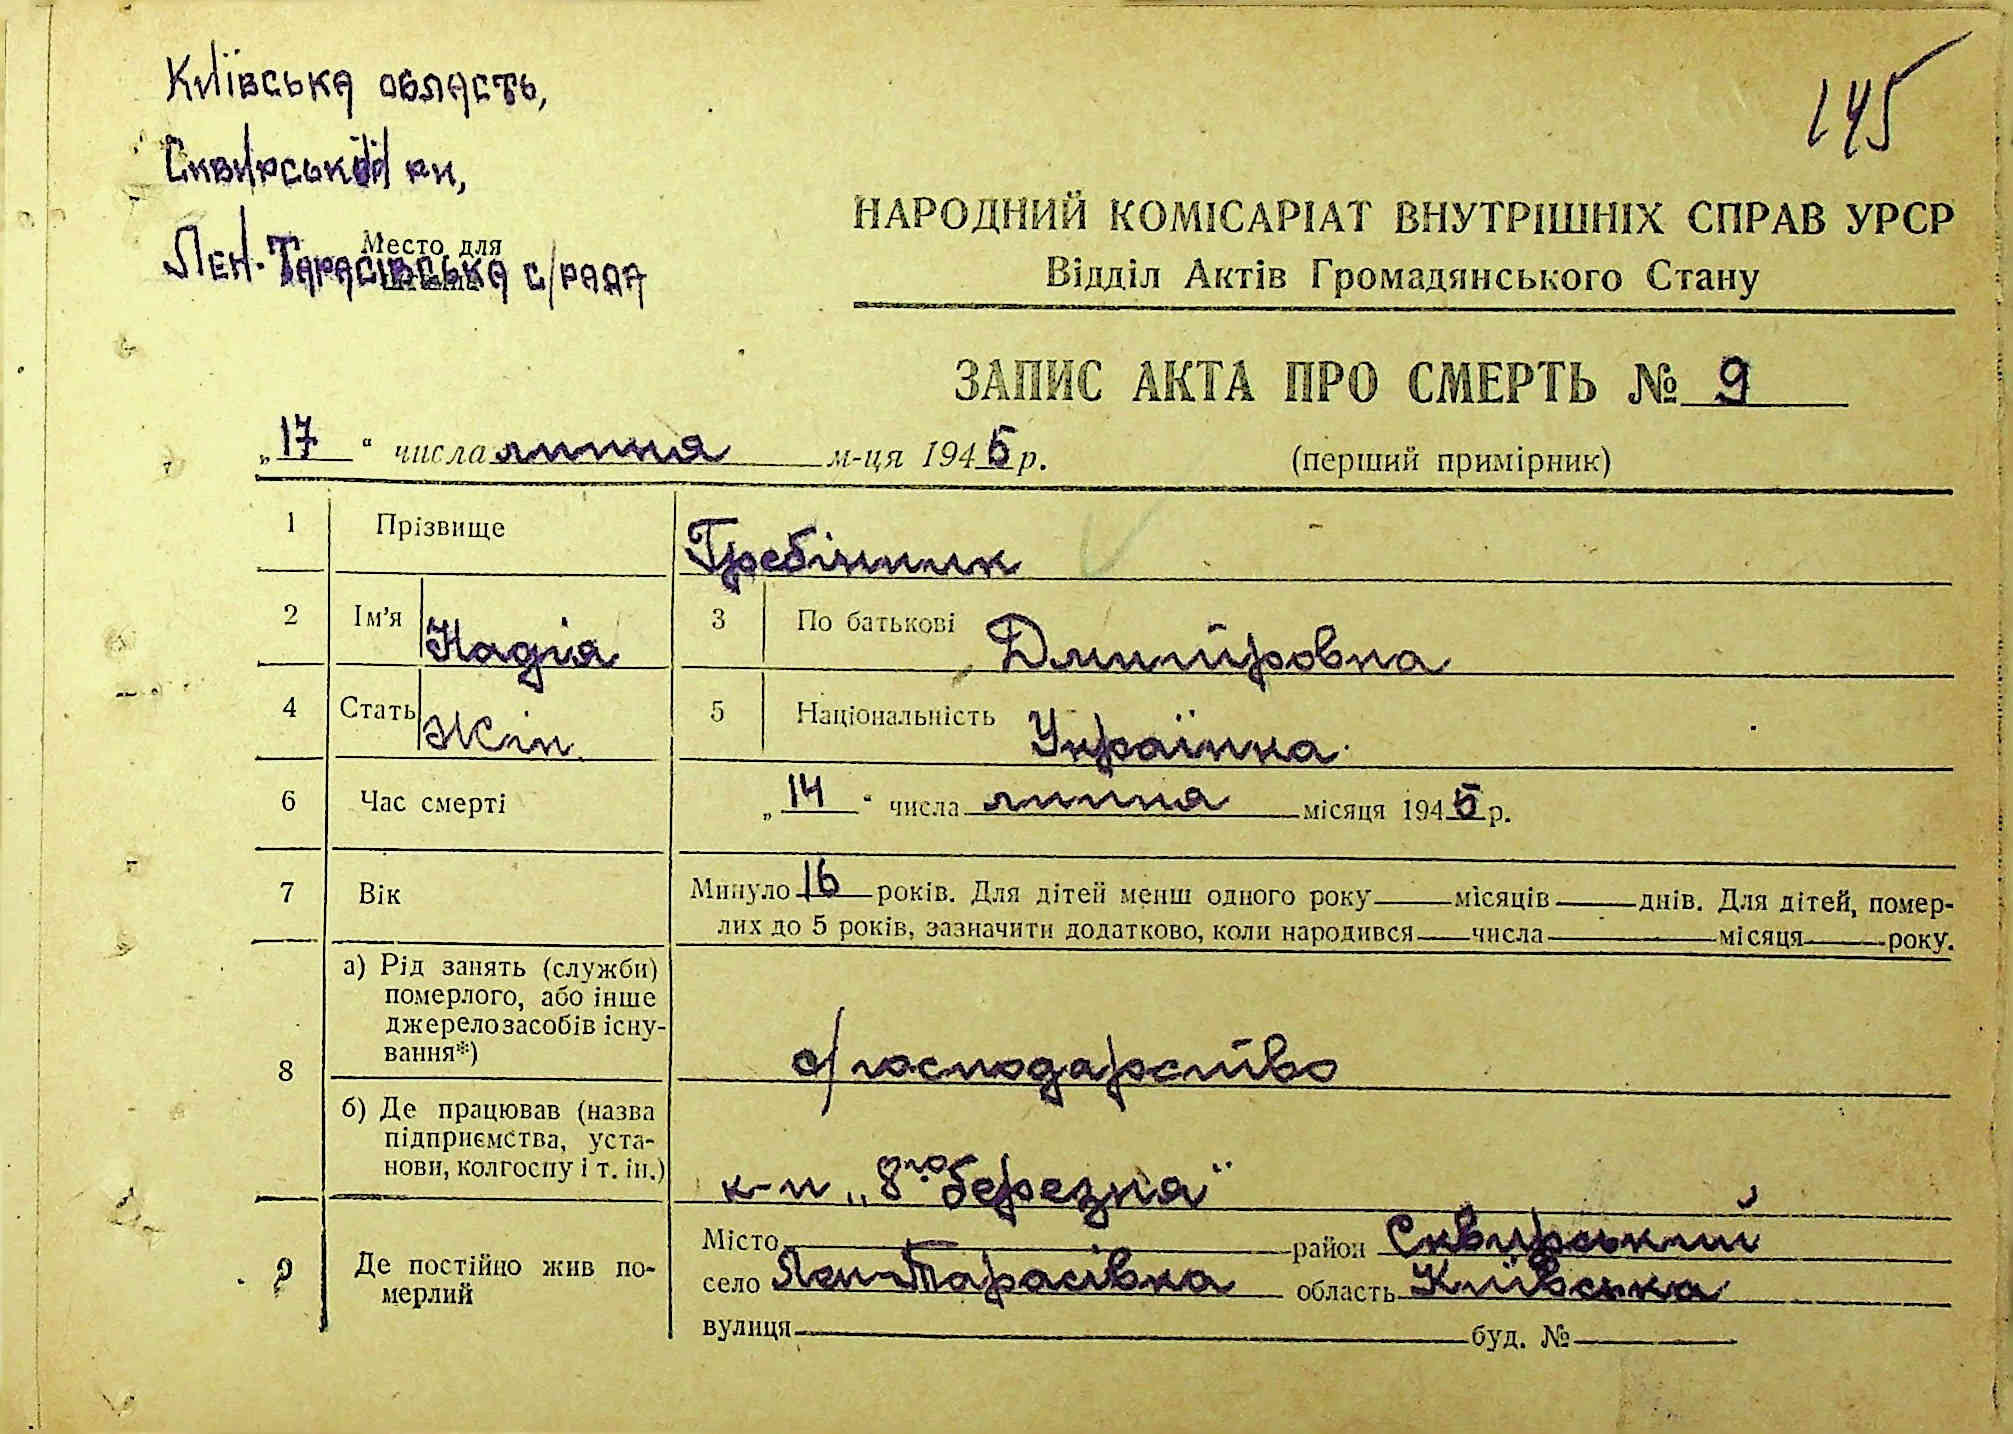 145
Київська область,
Сквирський рн,
Лен. Тарасівська с/рада
Место для
НАРОДНИЙ КОМІСАРІАТ ВНУТРІШНІХ СПРАВ УРСР
Відділ Актів Громадянського Стану
ЗАПИС АКТА ПРО СМЕРТЬ № 9
„17“ числа липня м-ця 1945 р. (перший примірник)
1 Прізвище Гребінник
2 Ім'я Надія 3 По батькові Дмитровна
4 Стать Жін 5 Національність Українка.
6 Час смерті „14“ числа липня місяця 1945 р.
7 Вік Минуло 16 років. Для дітей менш одного року місяців днів. Для дітей, помер-
лих до 5 років, зазначити додатково, коли народився числа місяця року.
8 а) Рід занять (служби)
померлого, або інше
джерело засобів існу-
вання*) с/господарство
б) Де працював (назва
підприємства, уста-
нови, колгоспу і т. ін.) к-п „8го березня"
9 Де постійно жив по-
мерлий
Місто район Сквирський
село Лен-Тарасівка область Київська
вулиця буд. №